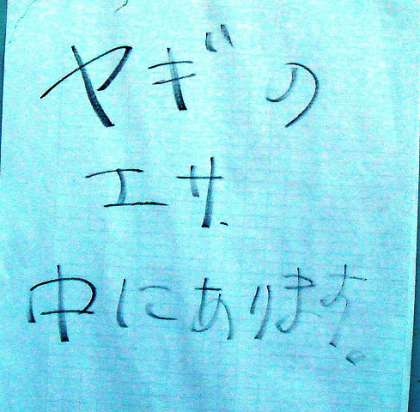 ヤギの
エサ
中にあります。